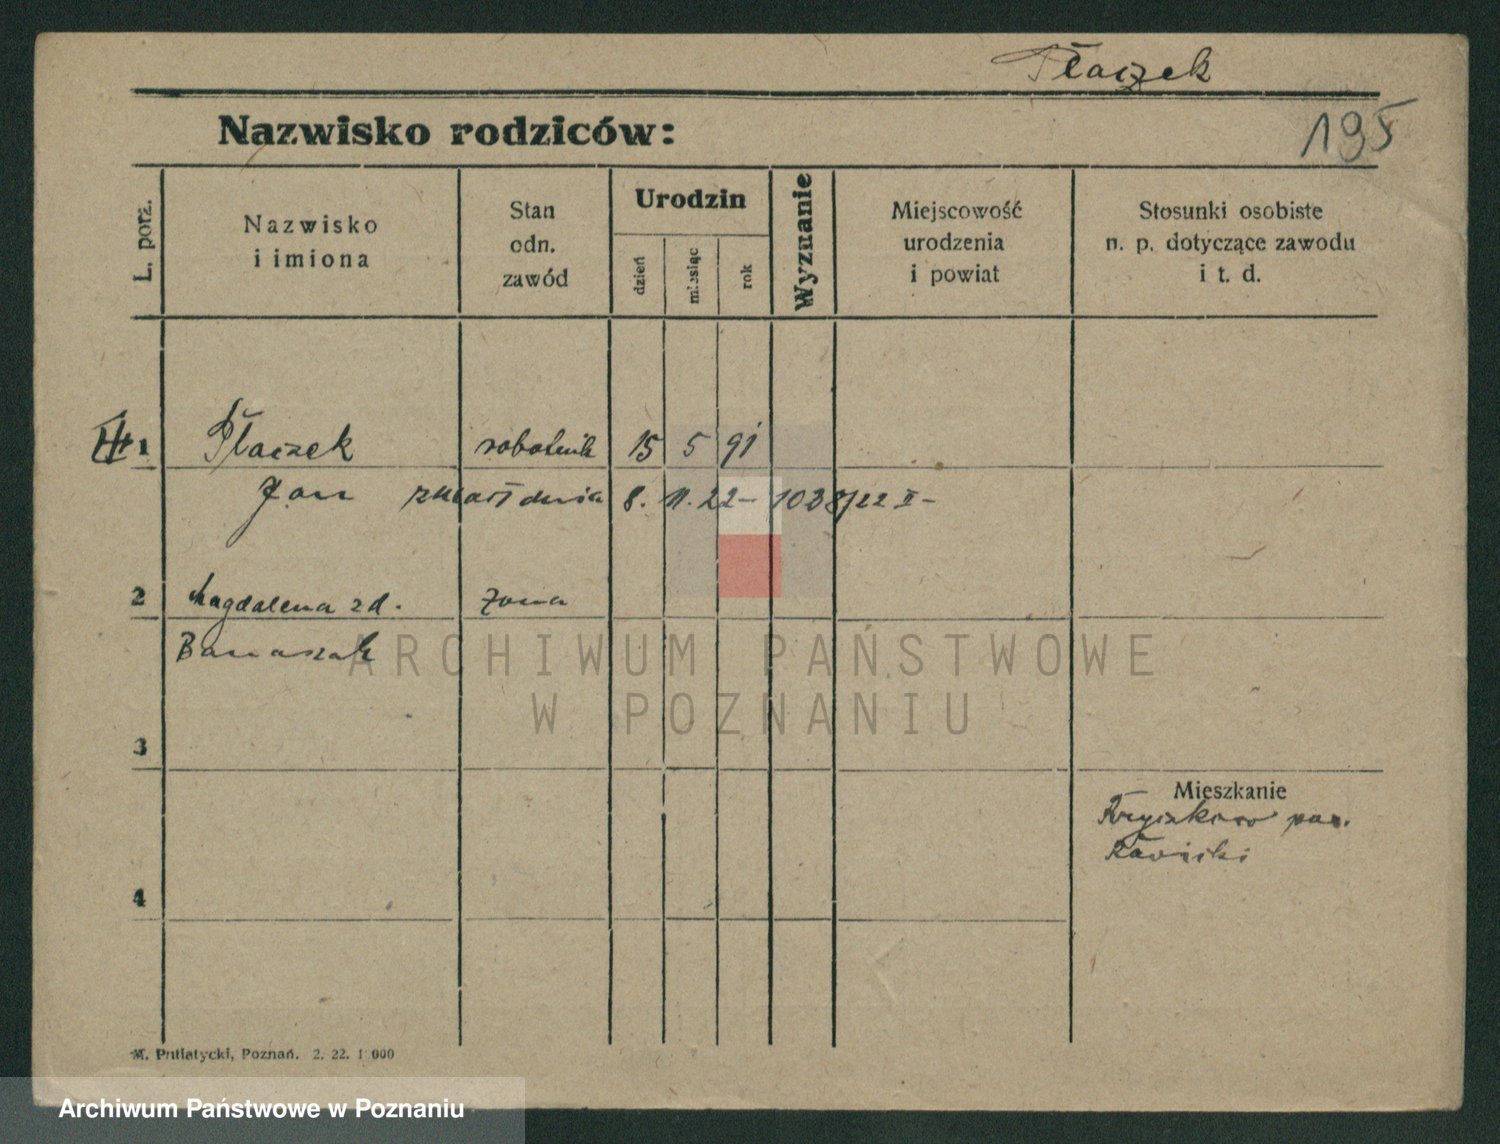 Płaczek
195
Nazwisko rodziców:
L. porz.
Nazwisko
i imiona
Stan
odn.
zawód
Urodzin
dzień
miesiąc
rok
Wyznanie
Miejscowość
urodzenia
i powiat
Stosunki osobiste
n. p. dotyczące zawodu
i t. d.
1 Płaczek robotnik 15 5 91
Jan zmarł dnia 8. 11. 22 – 1038/22 II –
2 Magdalena zd. żona
Banaszak
3
Mieszkanie
4
M. Putiatycki, Poznań. 2. 22. 1 000
ARCHIWUM PAŃSTWOWE
W POZNANIU
Archiwum Państwowe w Poznaniu